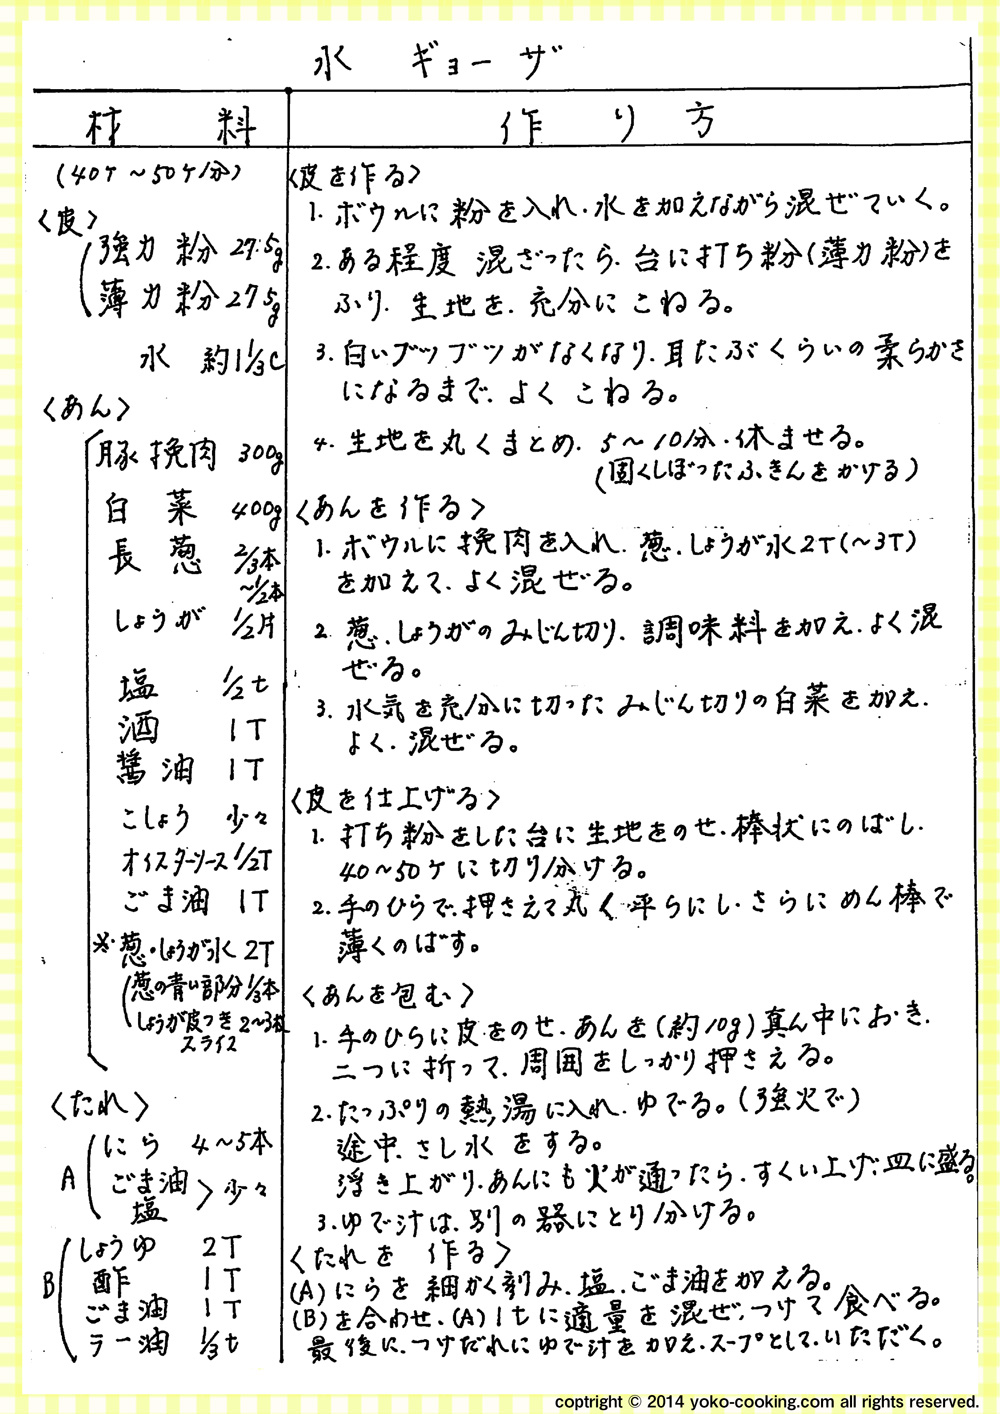 水 ギョーザ
材 料
作 り 方
(40ケ～50ケ分)
〈皮〉
強力粉 275g
薄力粉 275g
水 約1⅓C
〈あん〉
豚挽肉 300g
白菜 400g
長葱 2/3本
～1/2本
しょうが 1/2片
塩 1/2t
酒 1T
醤油 1T
こしょう 少々
オイスターソース 1/2T
ごま油 1T
※葱・しょうが水 2T
(葱の青い部分 1/3本
しょうが皮つき 2～3枚
スライス
〈たれ〉
A
にら 4～5本
ごま油
塩 〉少々
B
しょうゆ 2T
酢 1T
ごま油 1T
ラー油 1/3t
〈皮を作る〉
1. ボウルに粉を入れ、水を加えながら混ぜていく。
2. ある程度 混ざったら、台に打ち粉(薄力粉)を
ふり、生地を、充分にこねる。
3. 白いブツブツがなくなり、耳たぶくらいの柔らかさ
になるまで、よく こねる。
4. 生地を丸くまとめ、5～10分、休ませる。
(固くしぼったふきんをかける)
〈あんを作る〉
1. ボウルに挽肉を入れ、葱、しょうが水2T(～3T)
を加えて、よく混ぜる。
2. 葱、しょうがのみじん切り、調味料を加え、よく混
ぜる。
3. 水気を充分に切ったみじん切りの白菜を加え、
よく、混ぜる。
〈皮を仕上げる〉
1. 打ち粉をした台に生地をのせ、棒状にのばし、
40～50ケに切り分ける。
2. 手のひらで、押さえて丸く平らにし、さらにめん棒で
薄くのばす。
〈あんを包む〉
1. 手のひらに皮をのせ、あんを(約10g)真ん中におき、
二つに折って、周囲をしっかり押さえる。
2. たっぷりの熱湯に入れ、ゆでる。(強火で)
途中、さし水をする。
浮き上がり、あんにも火が通ったら、すくい上げ、皿に盛る。
3. ゆで汁は、別の器にとり分ける。
〈たれを 作る〉
(A)にらを細かく刻み、塩、ごま油を加える。
(B)を合わせ、(A)1tに適量を混ぜ、つけて食べる。
最後に、つけだれにゆで汁を加え、スープとして、いただく。
copyright © 2014 yoko-cooking.com all rights reserved.